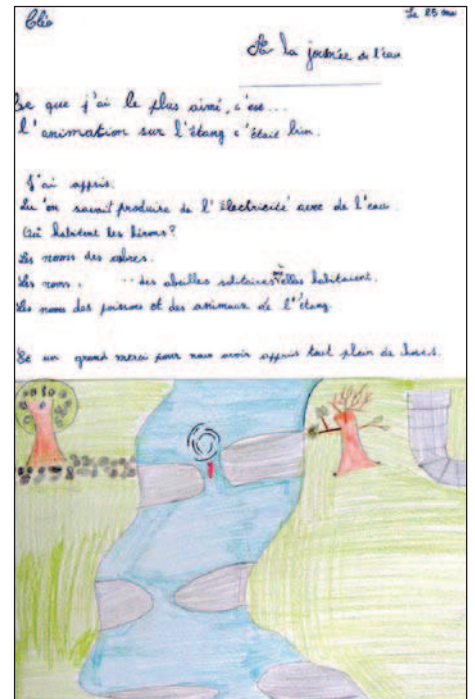 Cléo
Le 25 mai
A la journée de l'eau
Ce que j'ai le plus aimé, c'est...
l'animation sur l'étang c'était bien.
J'ai appris.
Qu'on savait produire de l'électricité avec de l'eau.
Où habitent les hérons?
Les noms des arbres.
Les noms. des abeilles solitaires elles habitaient.
Les noms des poissons et des animaux de l'étang.
Et un grand merci pour nous avoir appris tout plein de choses.